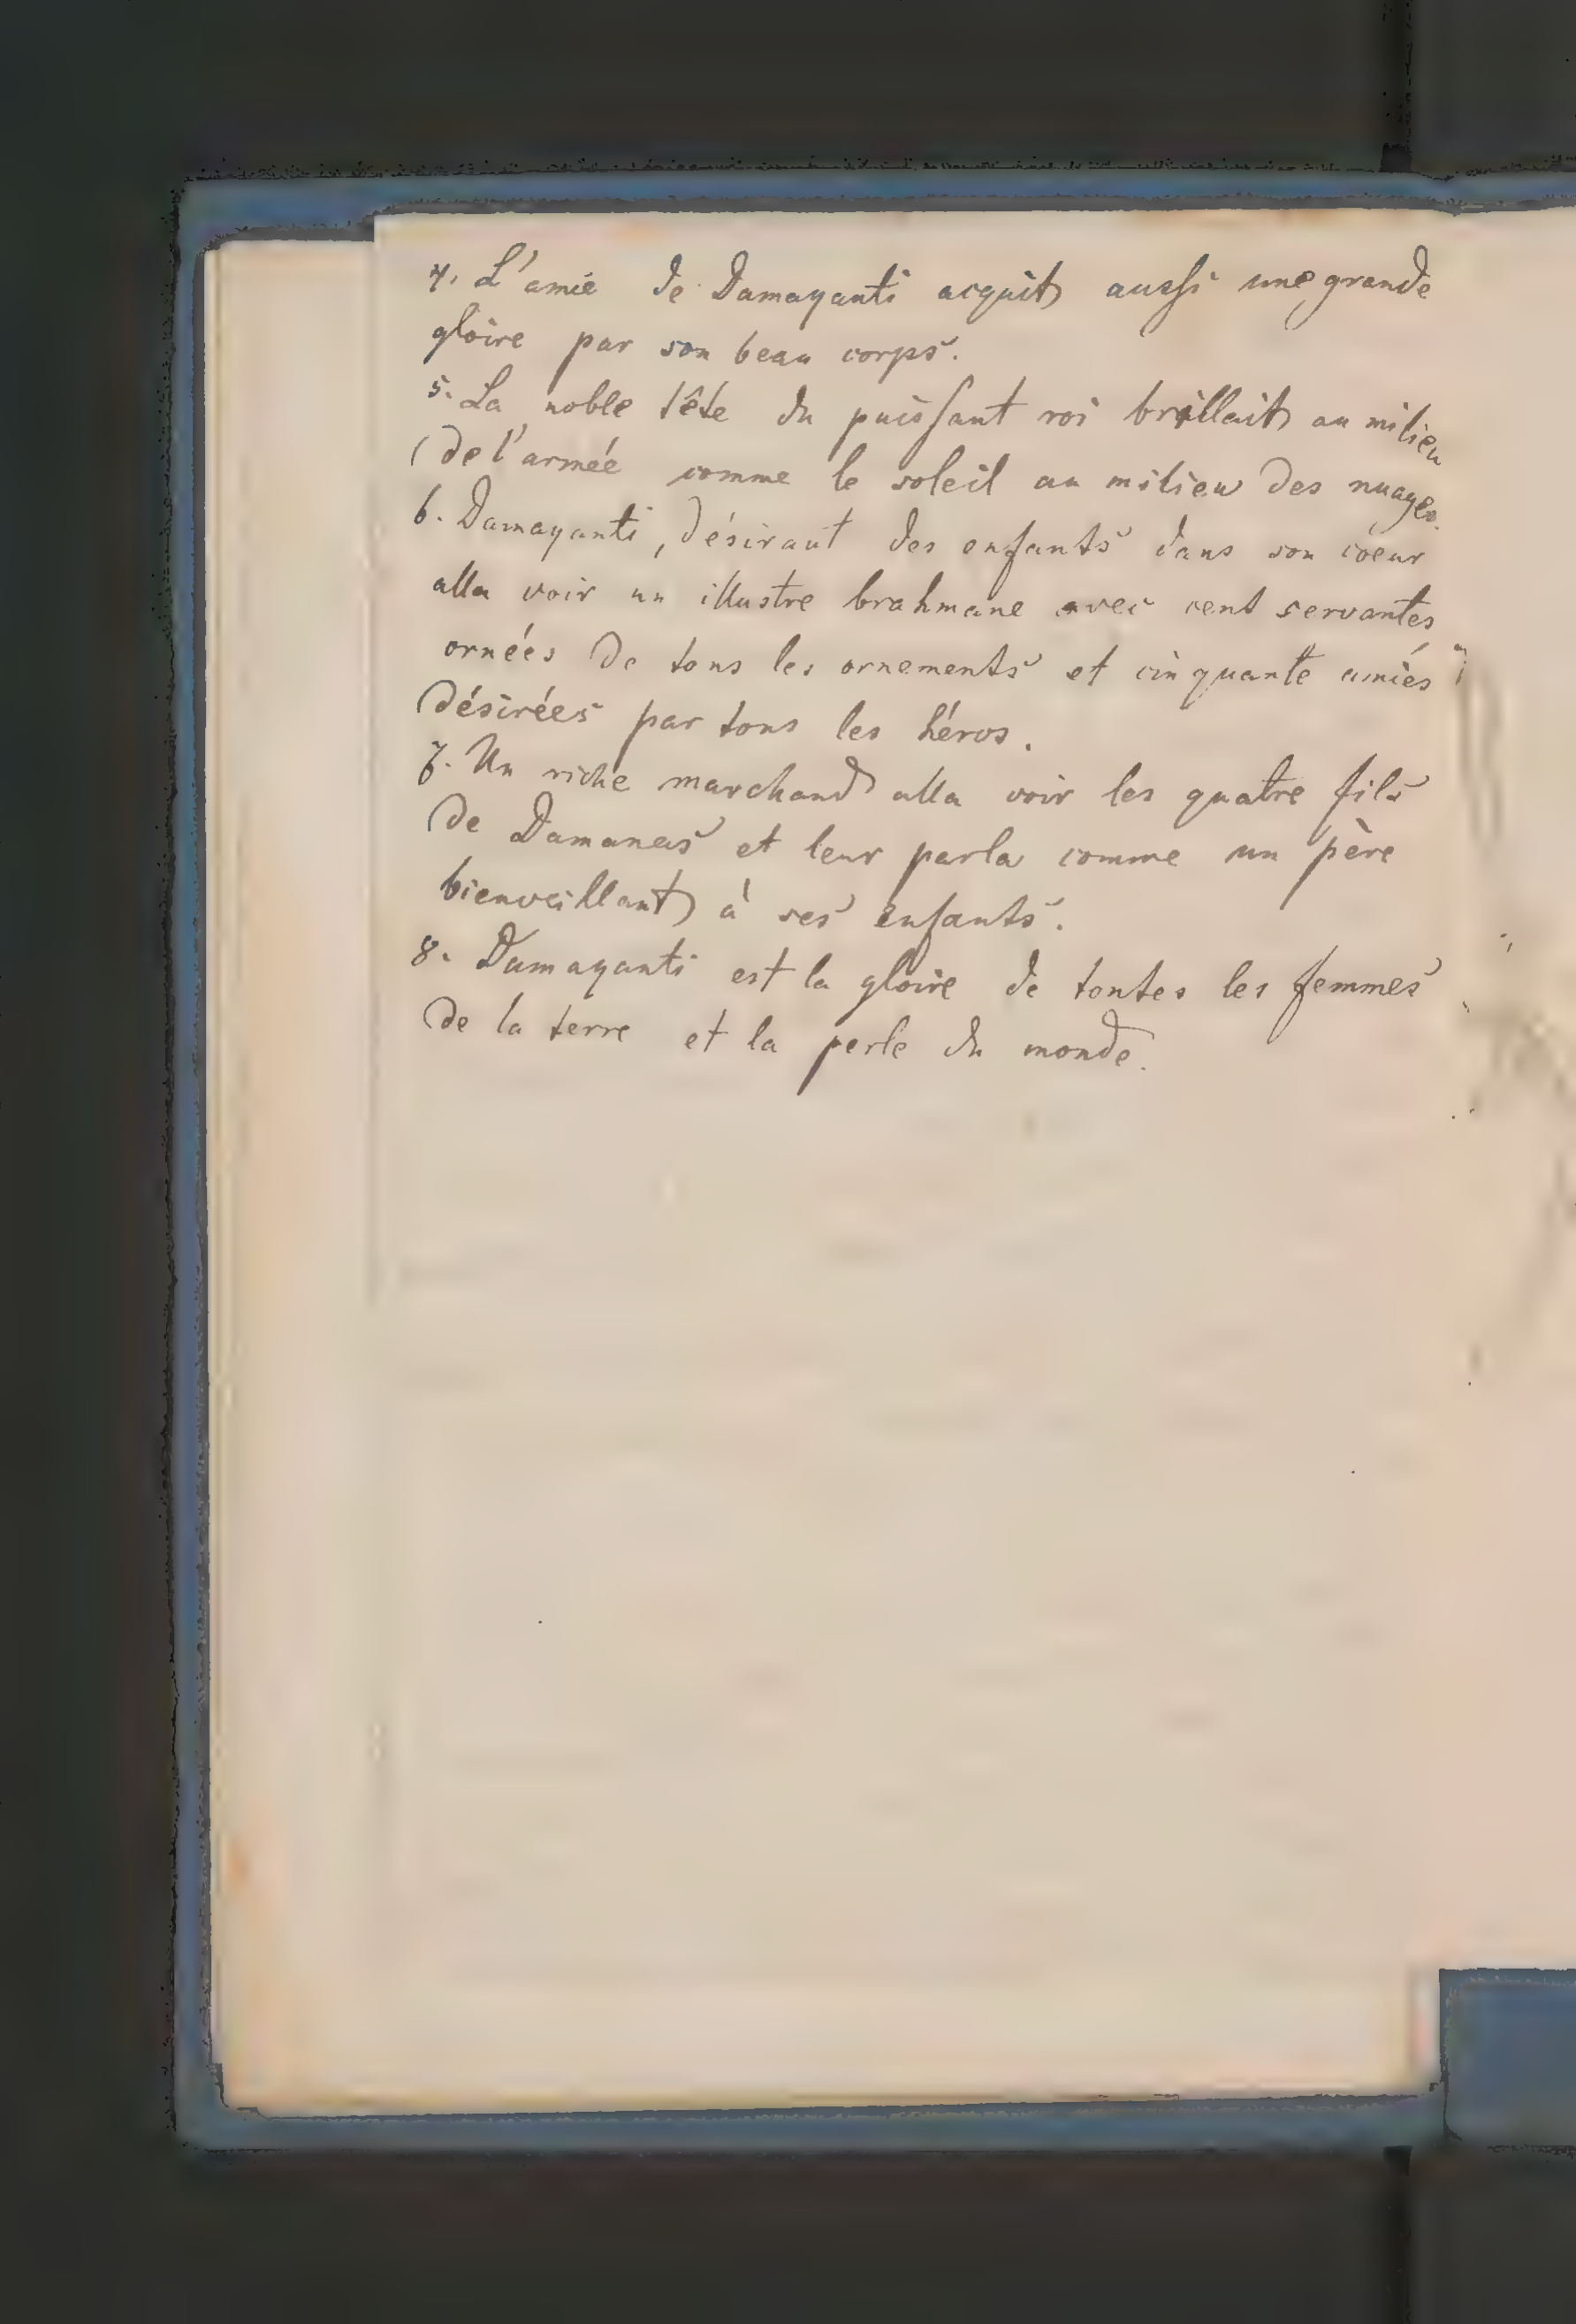 4. L'amie de Damayanti acquit aussi une grande
gloire par son beau corps.
5. La noble tête du puissant roi brillait au milieu
de l'armée comme le soleil au milieu des nuages.
6. Damayanti, désirant des enfants dans son coeur
alla voir un illustre brahmane avec cent servantes
ornées de tous les ornements et cinquante amies
désirées par tous les héros.
7. Un riche marchand alla voir les quatre fils
de Damanas et leur parla comme un père
bienveillant à ses enfants.
8. Damayanti est la gloire de toutes les femmes
de la terre et la perle du monde.